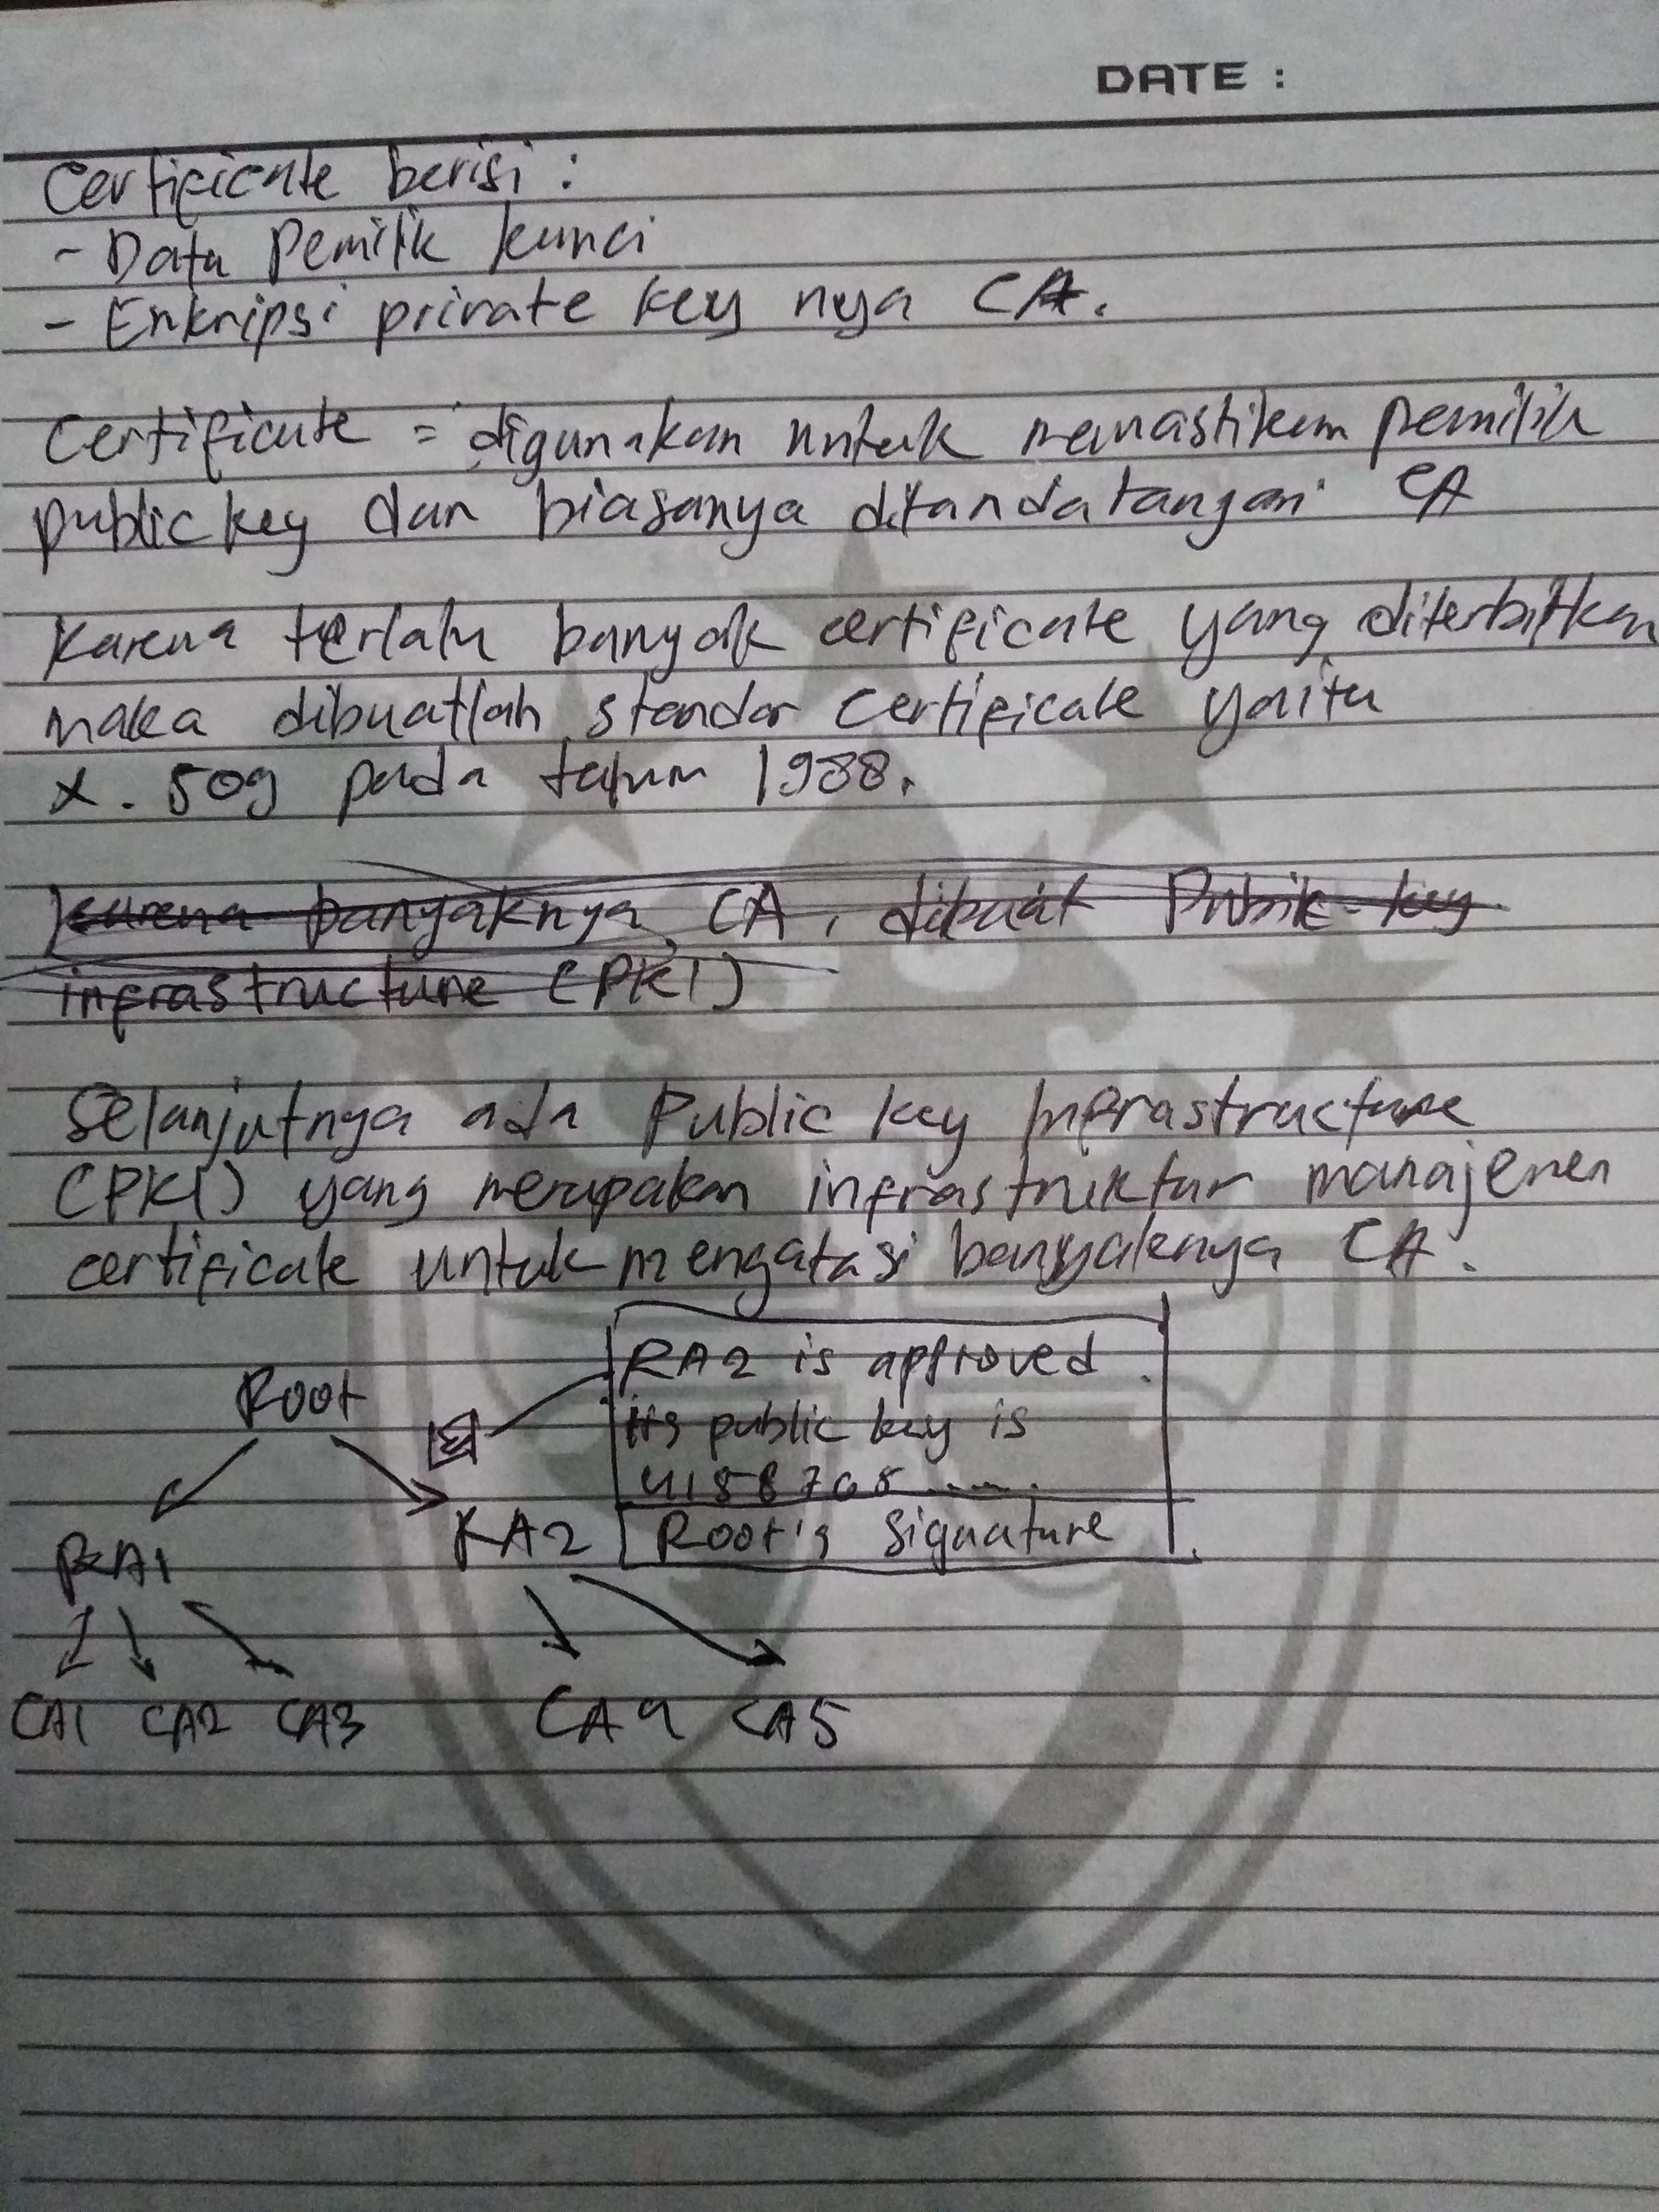 DATE :
Certificate berisi :
- Data Pemilik kunci
- Enkripsi private key nya CA.
Certificate = digunakan untuk memastikan pemilik
public key dan biasanya ditandatangani CA
Karena terlalu banyak certificate yang diterbitkan
maka dibuatlah standar certificate yaitu
X. 509 pada tahun 1988.
karena banyaknya CA, dibuat Public key
infrastructure (PKI)
Selanjutnya ada Public key Infrastructure
(PKI) yang merupakan infrastruktur manajemen
certificate untuk mengatasi banyaknya CA.
RA2 is approved.
Root
its public key is
4158768......
RA2 Root's signature
RA1
CA1 CA2 CA3 CA4 CA5